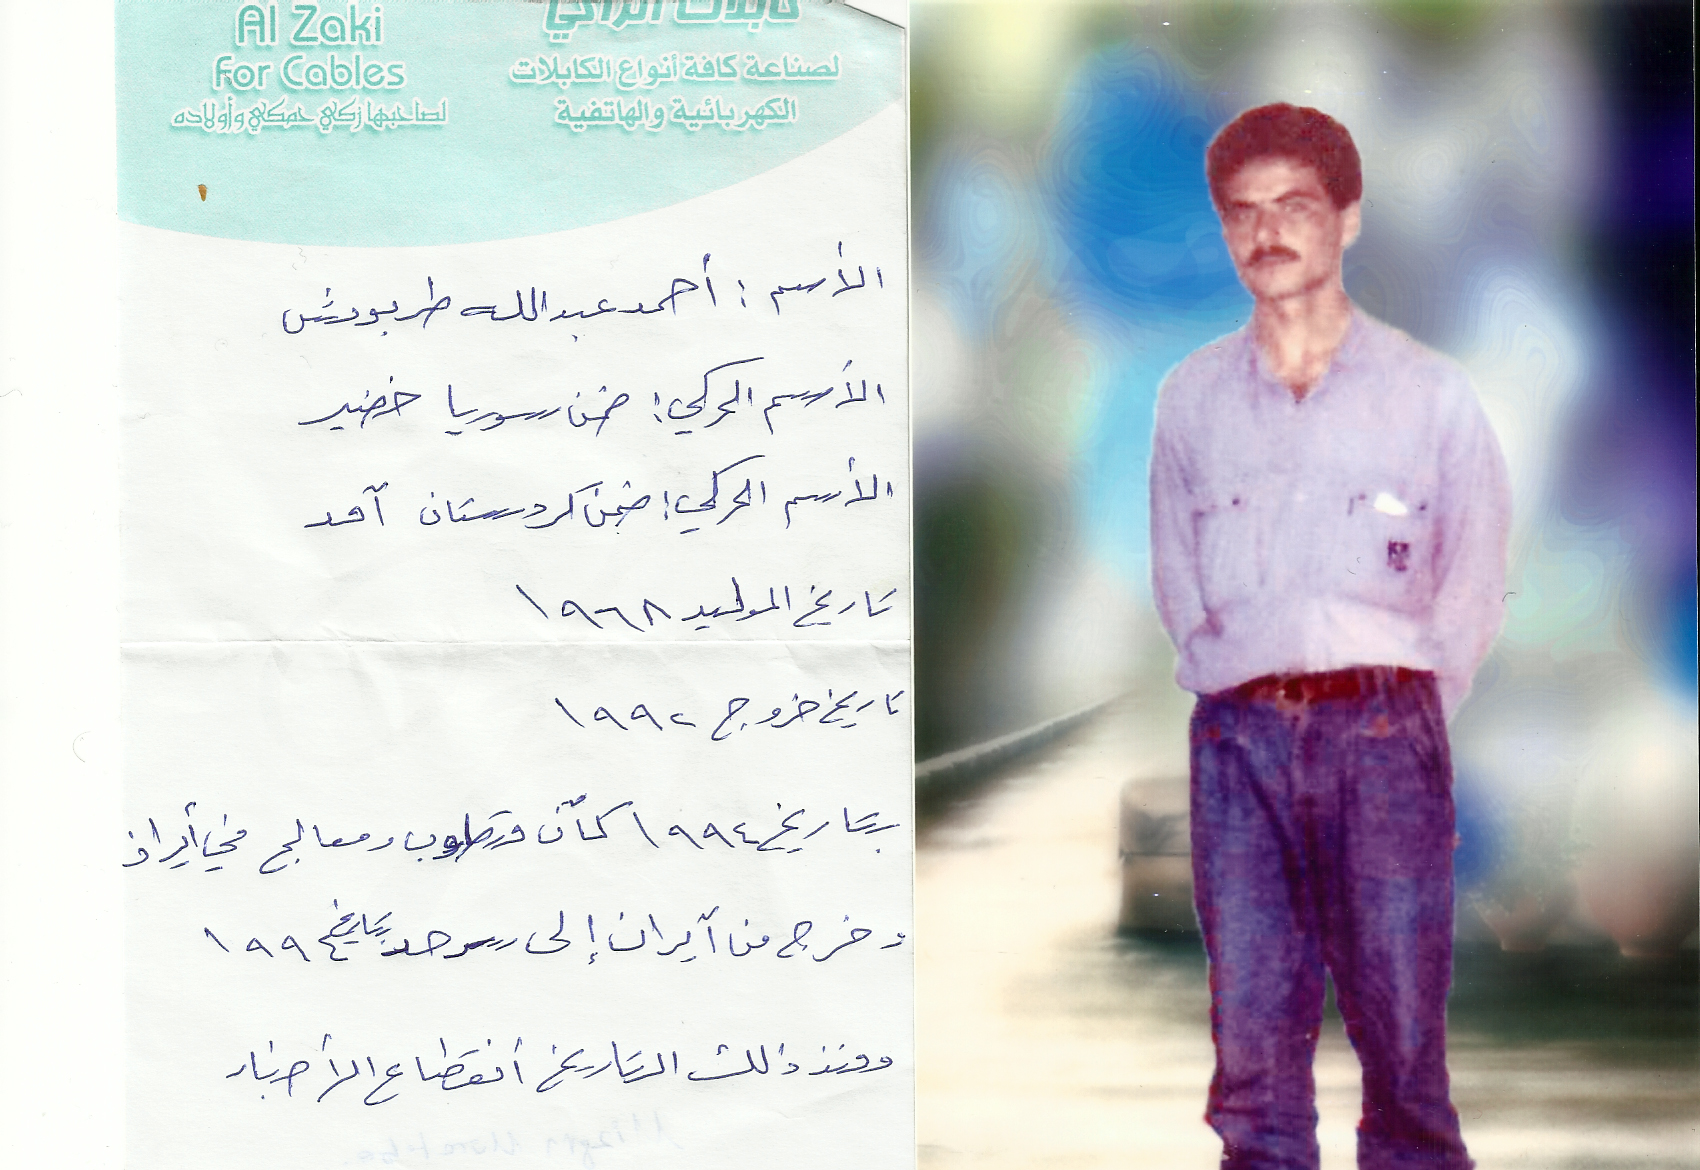 Al Zaki
for Cables
لصاحبها زكي حمكي وأولاده
كابلات الزاكي
لصناعة كافة أنواع الكابلات
الكهربائية والهاتفية
الأسم : أحمد عبدالله طربوش
الأسم الحركي : ضمن سوريا خضير
الأسم الحركي : ضمن كردستان آمد
تاريخ المواليد ١٩٦٨
تاريخ خروج ١٩٩٢
بتاريخ ١٩٩٤ كان ومعالج في أيران
وخرج من آيران إلى سرحد بتاريخ ١٩٩
ومنذ ذلك التاريخ أنقطاع الأخبار